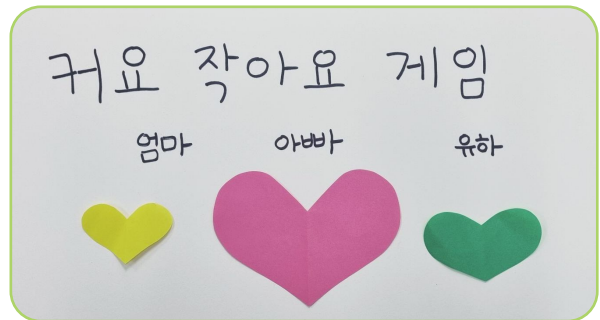 커요 작아요 게임
엄마 아빠 유하